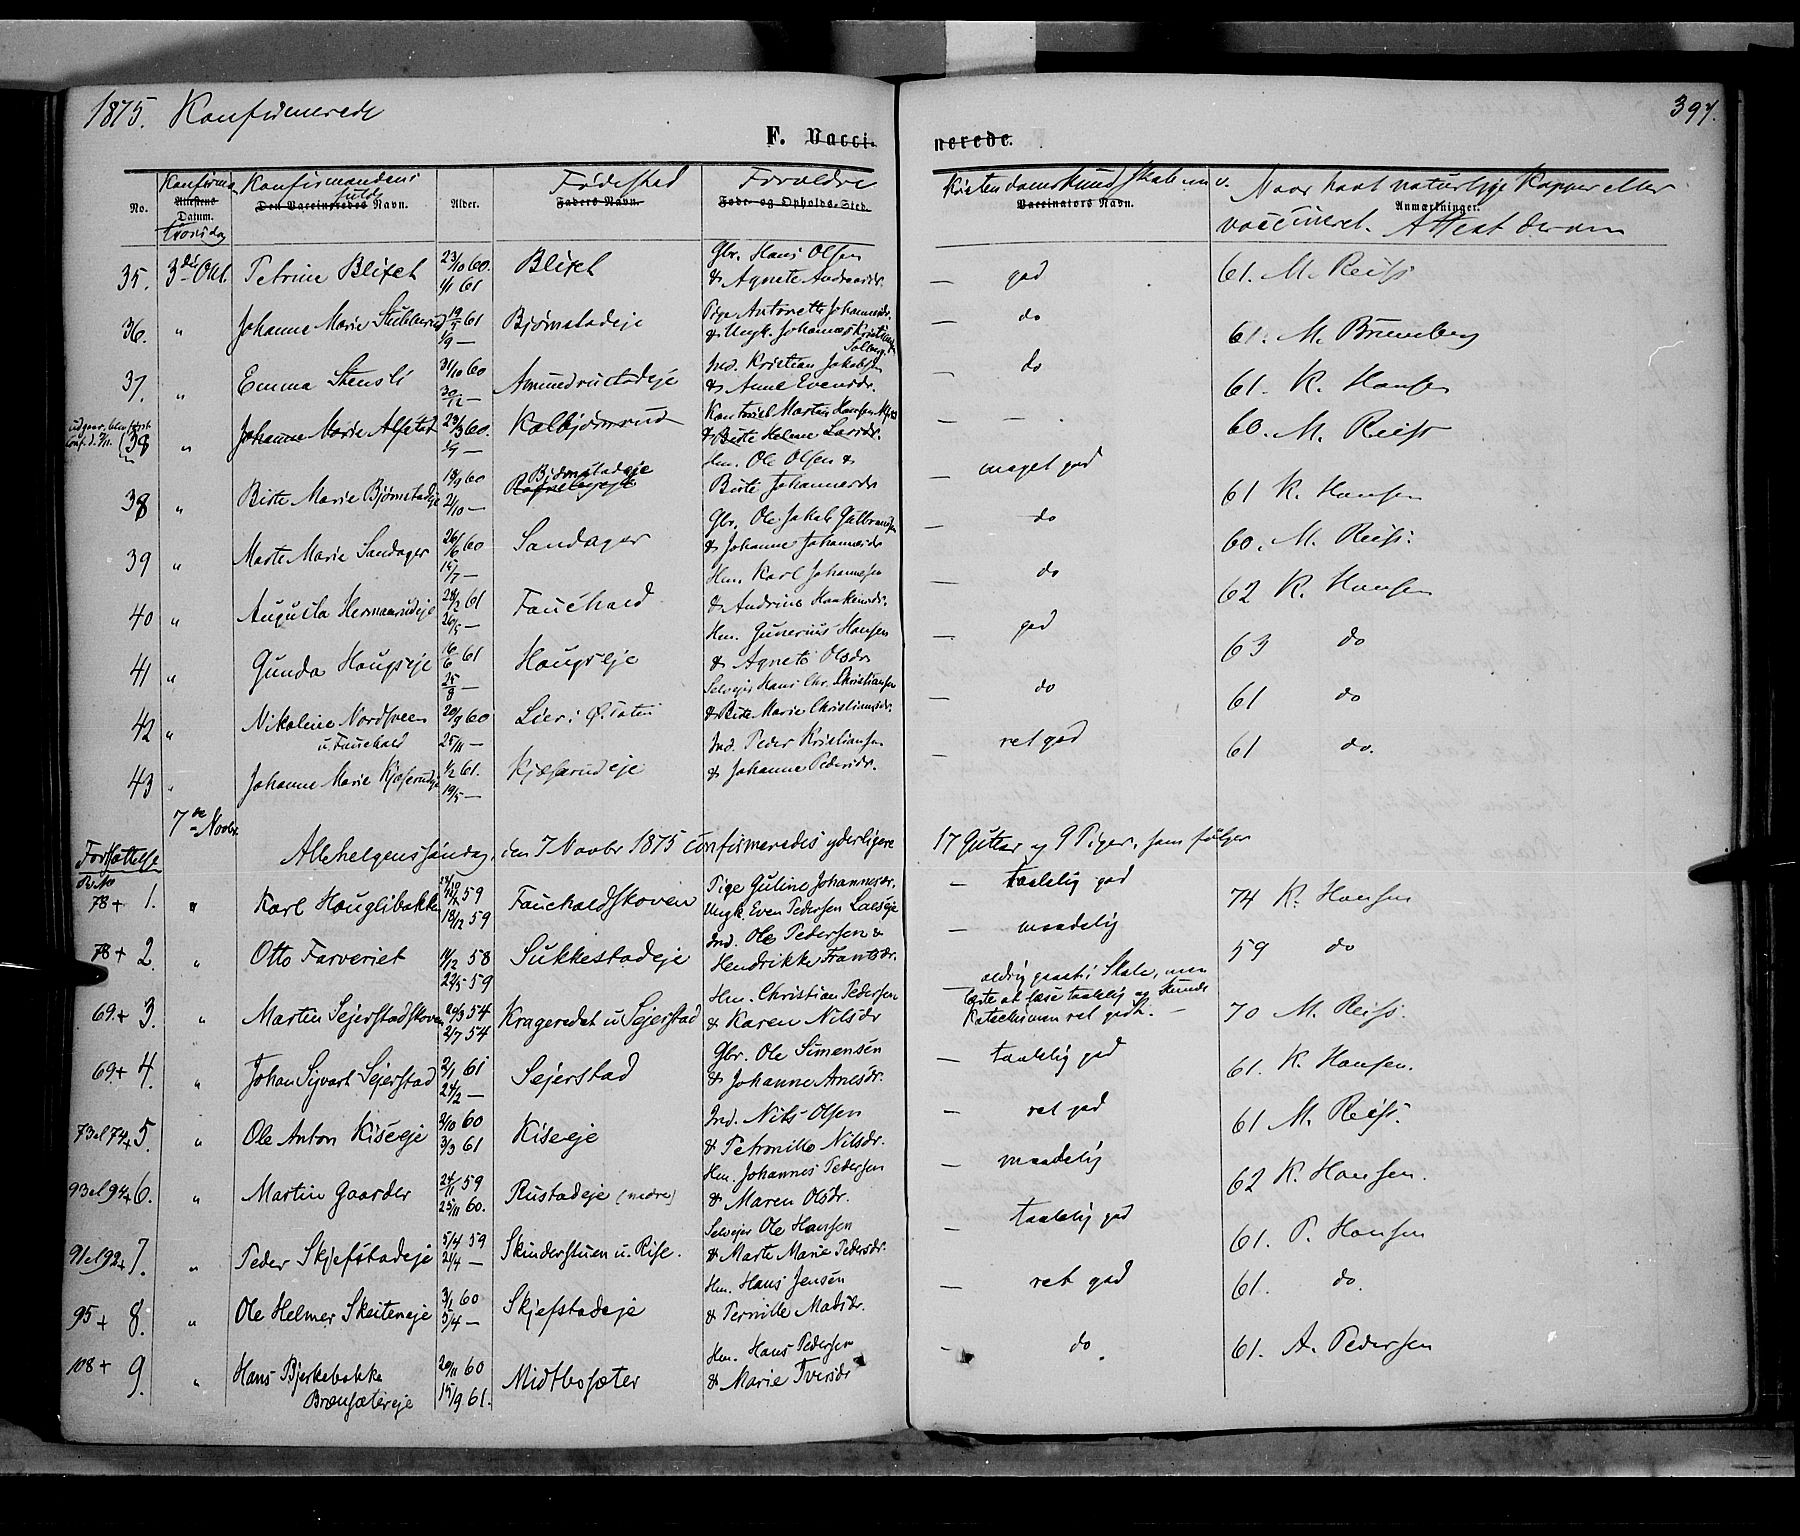 1875. Konfirmerede
397.
F. Vacci- nerede.
No. Konfirma Attestens Datum. tionsdag
Konfirmandens fulde Den Vaccineredes Navn.
Alder.
Fødested Faders Navn.
Forældre Føde- og Opholds-Sted.
Kristendomskundskab m. v. Vaccinators Navn.
Naar havt naturlige Kopper eller Anmærkninger. vaccineret. Attest derom
35. 3die Okt. Petrine Blixet 23/10 60. 1/1 61 Blixet Gbr. Hans Olsen & Agnete Andreasdr. — god 61. M. Reiss
36. " Johanne Marie Stubberud 19/5 61 1/9 — Bjørnstadeje Pige Antonette Johannesdr. & Ungk. Johannes Kristiansen Solberg. — do 61. M. Brunsberg
37. " Emma Stensli 31/10 60 30/12 — Amundrustadeje Ind. Kristian Jakobsen & Anne Evensdr. — do 61. K. Hansen
udgaar, blev først conf. d. 7/11. (38 " Johanne Marie Alfstad 29/3 60. 1/7 — Kolbjørnsrud Kantoniel Martin Hansen & Birte Helene Larsdr. — — 60. M. Reiss
38 " Birte Marie Bjørnstadeje 18/9 60 2/10 — Bjørnstadeje Hm. Ole Olsen & Birte Johannesdr — meget god 61 K. Hansen
39 " Marte Marie Sandager 26/6 60 15/7 — Sandager Gbr. Ole Jakob Gulbrandsen & Johanne Johannesdr — do 60. M. Reiss.
40 " Augusta Hermansrudeje 28/2 61 26/5 — Fauchald Hm. Karl Johannesen & Andrine Haakensdr. — do 62 K. Hansen
41 " Gunda Haugseje 6/6 61 25/8 — Haugseje Hm. Gunerius Hansen & Agnete Olsdr — god 63 do
42 " Nikoline Nordsveen u. Fauchald 20/9 60 25/11 — Lier i Ø. Toten Selvejer Hans Chr. Christiansen & Birte Marie Christiansdr. — do 61 do
43 " Johanne Marie Kjæserudeje 1/2 61. 19/5 — Kjæserudeje Ind. Peder Kristiansen & Johanne Pedersdr. — ret god 61 do.
7de Novbr.
Allehelgenssøndag, den 7 Novbr 1875 confirmeredes yderligere 17 Gutter og 9 Piger, som følger
Forsættelse
78+ 1. " Karl Hauglibakken 59 18/12 59 Fauchaldskoven Pige Guline Johannesdr. Ungk. Even Pedersen Laeseje — taalelig god 74 K. Hansen
78+ 2. " Otto Farveriet 14/12 58 22/5 59 Sukkestadeje Ind. Ole Pedersen & Hendrikke Frantsdr. — maadelig 59 do
69.+ 3. " Martin Sejerstadskoven 20/3 54 2/7 54 Krageredet u Sejerstad Hm. Christian Pedersen & Karen Nilsdr — aldrig gaaet i Skole, men lærte at læse taalelig og kunde Katechismen ret godt. — 70 M. Reiss.
69+ 4. " Johan Sigvart Sejerstad 2/1 61 24/2 — Sejerstad Gbr. Ole Simensen & Johanne Arnesdr. — taalelig god 61. K. Hansen.
73 el 74+ 5. " Ole Anton Kiseeje 2/10 60 3/3 61 Kiseeje Ind. Nils Olsen & Petronille Nilsdr. — ret god 61 M. Reiss.
93 el 94+ 6. " Martin Gaarder 24/11 59 25/11 60. Rustadeje (nedre) Hm. Johannes Pedersen & Maren Olsdr. — maadelig 62 K. Hansen.
91 el 92+ 7. " Peder Skjefstadeje 5/4 59 21/4 — Skinderstuen u. Rise. Selvejer Ole Hansen & Marte Marie Pedersdr. — taalelig god 61. P. Hansen
95+ 8. " Ole Helmer Skeiteneje 3/2 60 5/4 — Skjefstadeje Hm. Hans Jensen & Pernille Madsdr. — ret god 61. do.
108+ 9. " Hans Bjerkebakke Brænsætereje 20/11 60 15/9 61. Midtbosæter Hm. Hans Pedersen & Marie Iversdr — do. 61. A. Pedersen